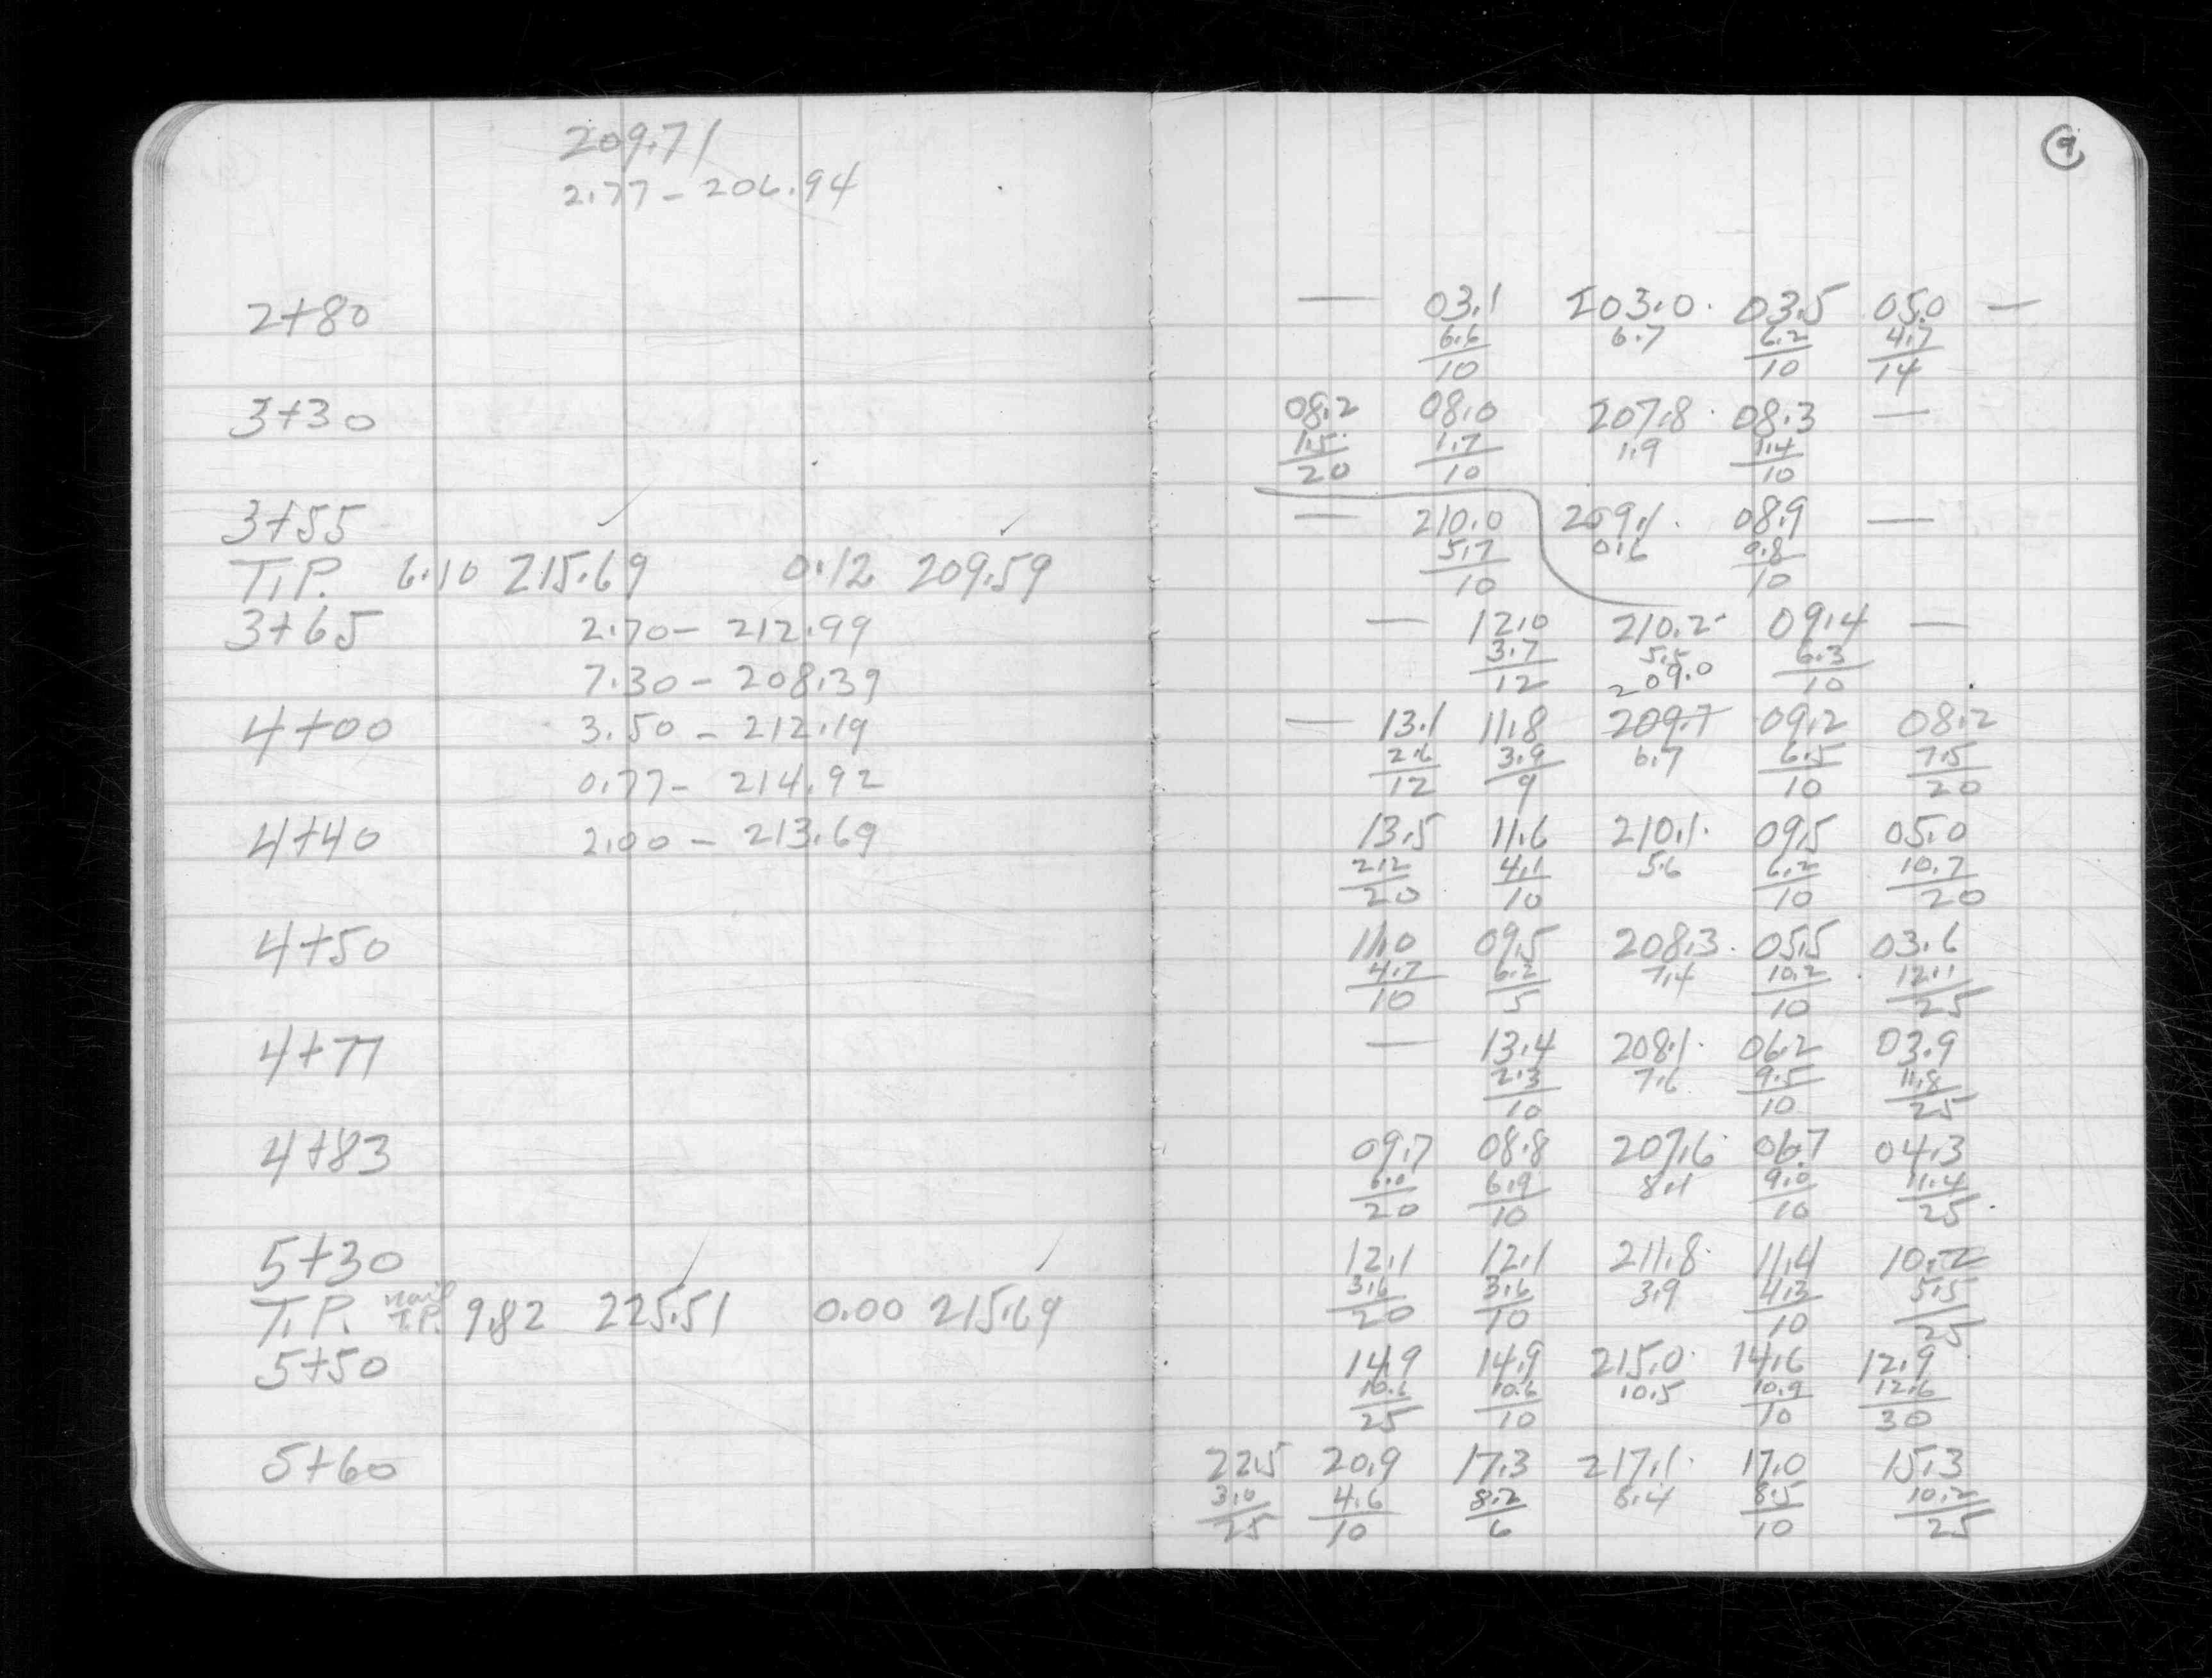 209.71
2.77 - 206.94
9
2+80
— 03.1 203.0 03.5 05.0 —
6.6 6.7 6.2 4.7
10 10 14
3+30
08.2 08.0 207.8 08.3 —
1.5 1.7 1.9 1.4
20 10 10
3+55
— 210.0 209.1 08.9 —
5.7 0.6 0.8
10 10
T.P. 6.10 215.69 0.12 209.59
3+65 2.70 - 212.99
— 12.0 210.2 09.4 —
3.7 5.5 6.3
12 209.0 10
7.30 - 208.39
4+00 3.50 - 212.19
— 13.1 11.8 209.7 09.2 08.2
2.6 3.9 6.7 6.5 7.5
12 9 10 20
0.77 - 214.92
4+40 2.00 - 213.69
13.5 11.6 210.1 09.5 05.0
2.2 4.1 5.6 6.2 10.7
20 10 10 20
4+50
11.0 09.5 208.3 05.5 03.6
4.7 6.2 7.4 10.2 12.1
10 5 10 25
4+77
— 13.4 208.1 06.2 03.9
2.3 7.6 9.5 11.8
10 10 25
4+83
09.7 08.8 207.6 06.7 04.3
6.0 6.9 8.1 9.0 11.4
20 10 10 25
5+30
12.1 12.1 211.8 11.4 10.2
3.6 3.6 3.9 4.3 5.5
20 10 10 25
T.P. nail T.P. 9.82 225.51 0.00 215.69
5+50
14.9 14.9 215.0 14.6 12.9
10.6 10.6 10.5 10.9 12.6
25 10 10 30
5+60
22.5 20.9 17.3 217.1 17.0 15.3
3.0 4.6 8.2 8.4 8.5 10.2
25 10 6 10 25